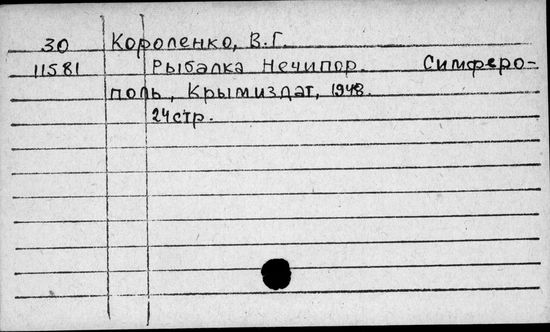 30 Короленко, В.Г.
11581 Рыбалка Нечипор. Симферо-
поль, Крымиздат, 1948.
24стр.